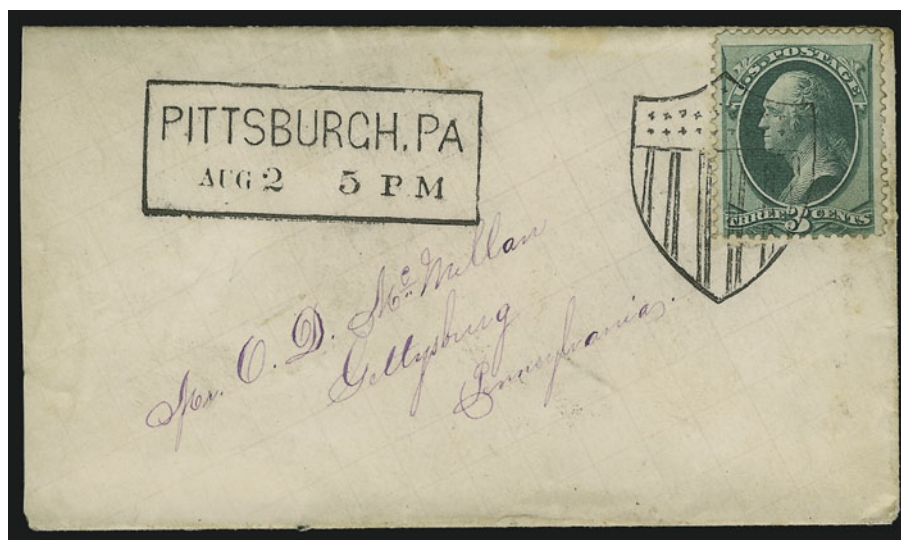 PITTSBURGH, PA
AUG 2 5 PM
U.S. POSTAGE
THREE 3 CENTS
Mr. O. D. McMillan
Gettysburg
Pennsylvania.